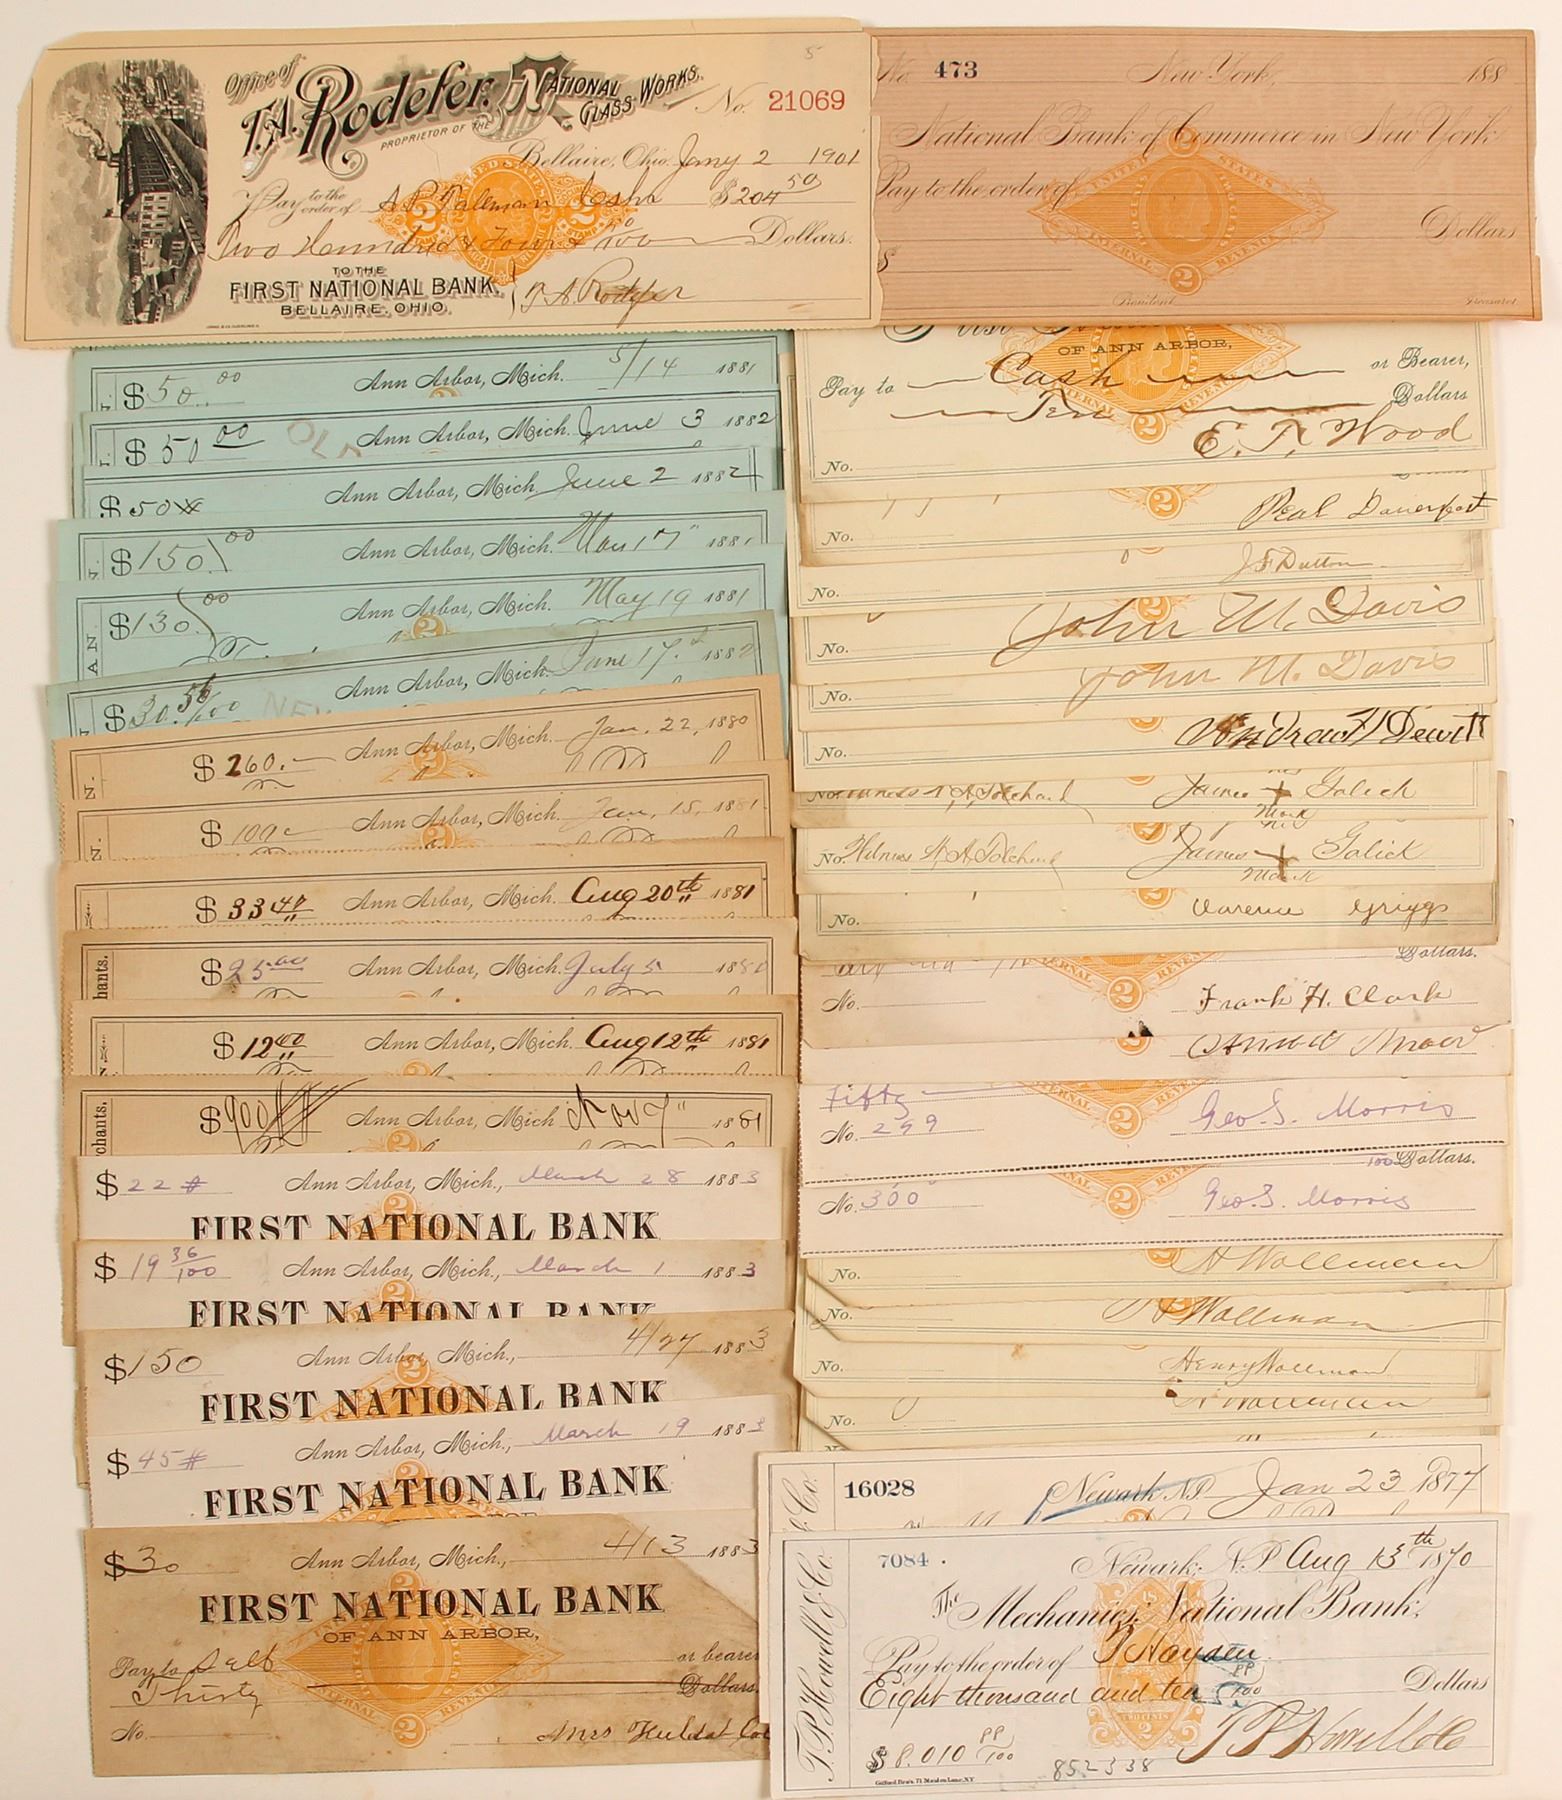 Office of
T.A. Rodefer.
PROPRIETOR OF THE
NATIONAL GLASS WORKS.
No. 21069
5
Bellaire, Ohio. Jany 2 1901
Pay to the order of A P Cash $204 50
Two Hundred & Four & 50/100 Dollars.
TO THE
FIRST NATIONAL BANK.
BELLAIRE, OHIO.
T. A. Rodefer
No. 473 New York, 188
National Bank of Commerce in New York
Pay to the order of
Dollars
$
2
INTERNAL REVENUE
President Treasurer
$50.00 Ann Arbor, Mich. 5/14 1881
$50 00 Ann Arbor, Mich. June 3 1882
$50 Ann Arbor, Mich. June 2 1882
$150.00 Ann Arbor, Mich. 17" 1881
$130.00 Ann Arbor, Mich. May 19 1881
$30.56/100 Ann Arbor, Mich. June 17 1882
$260.— Ann Arbor, Mich. Jan. 22, 1880
$100 Ann Arbor, Mich. Jan. 15, 1881
$33 47 Ann Arbor, Mich. Aug 20th 1881
hants.
$25 00 Ann Arbor, Mich. July 5 188
$12 00 Ann Arbor, Mich. Aug 12th 1881
chants.
$900 Ann Arbor, Mich Nov 7" 1881
$22 Ann Arbor, Mich., March 28 1883
FIRST NATIONAL BANK
$19 36/100 Ann Arbor, Mich., March 1 1883
FIRST NATIONAL BANK
$150 Ann Arbor, Mich., 4/27 1883
FIRST NATIONAL BANK
$45 Ann Arbor, Mich., March 19 1883
FIRST NATIONAL BANK
$30 Ann Arbor, Mich., 4/13 1883
FIRST NATIONAL BANK
OF ANN ARBOR,
Pay to Self or bearer
Thirty Dollars.
INTERNAL REVENUE
2
No. Mrs
OF ANN ARBOR,
Pay to Cash or Bearer,
Ten Dollars
No. E. T. Wood
No. Davenport
No. J F Dutton
No. John M. Davis
No. John M. Davis
No. Andrew J Dewitt
James + Golick
mark
No. Witness James + Golick
mark
No. Clarence Griggs
Dollars.
No. Frank H. Clark
Fifty
No. 299 Geo. S. Morris
Dollars.
No. 300 Geo. S. Morris
No. H Wollman
No. H Wollman
No. Henry Wollman
No. H Wollman
& Co.
16028 Newark N.P. Jan 23 1877
T.P. Howell & Co.
7084 Newark, N.P. Aug 13th 1870
The Mechanics National Bank,
Pay to the order of T Hayden
Eight thousand and ten Dollars
TWO CENTS
$8.010 T P Howell & Co
852338
Gifford Bro's. 71 Maiden Lane, NY